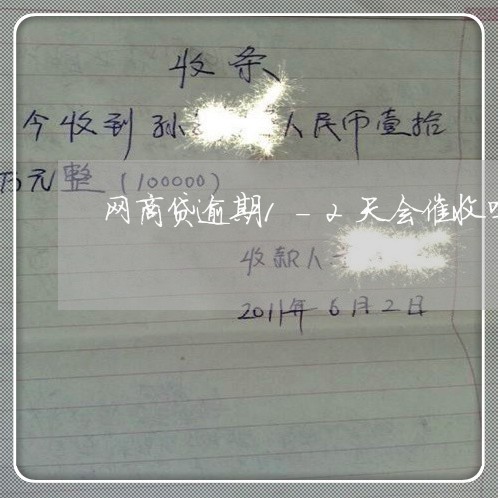 收条
今收到孙 人民币壹拾
万元整（100000）
网商贷逾期1-2天会催收
收款人
2011年6月2日